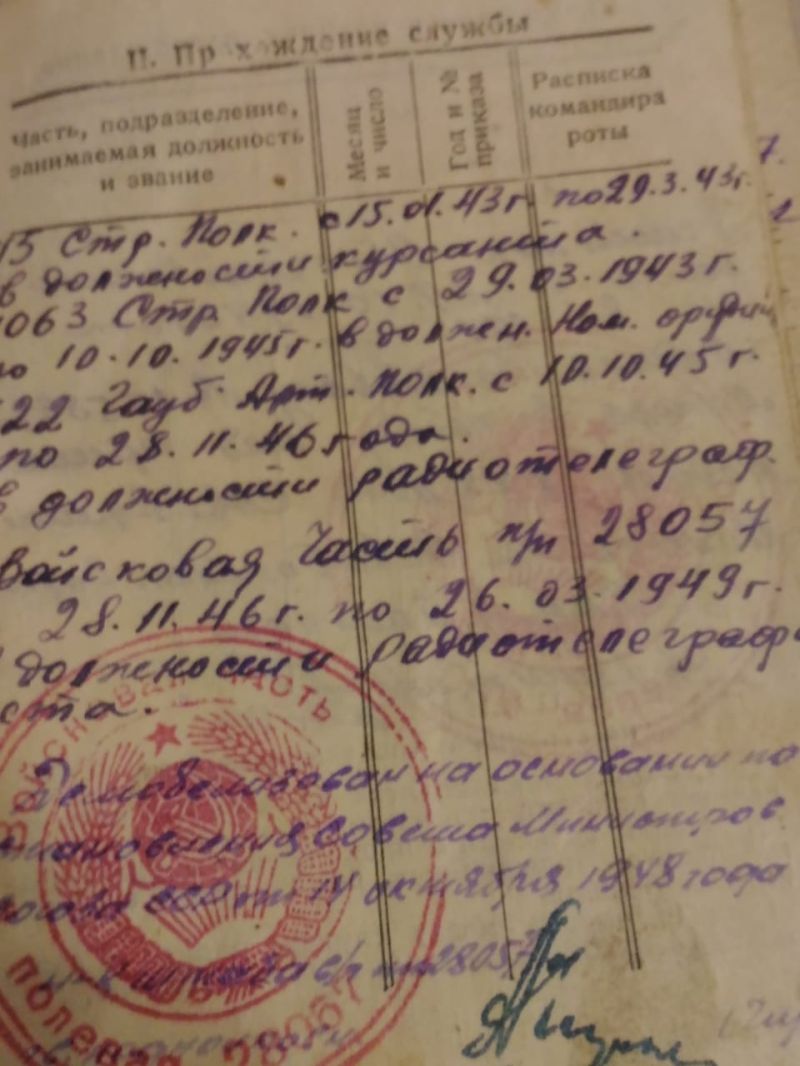 II. Прохождение службы
Часть, подразделение,
занимаемая должность
и звание
Месяц
и число
Год и №
приказа
Расписка
командира
роты
15 Стр. Полк. с 15.01.43г. по 29.3.43г.
в должности курсанта.
063 Стр Полк с 29.03.1943г.
по 10.10.1945г. в должен. Ном. орудий
22 Гауб. Арт. Полк. с 10.10.45г.
по 28.11.46 года.
в должности радиотелеграф.
Войсковая Часть п/п 28057
28.11.46г. по 26.03.1949г.
должности радиотелеграфи
ста.
Демобелизован на основании по
становления Совета Министров
Союза ССР от 14 октября 1948 года
штаба в/ч пп 28057
Войсковая часть
полевая 28057